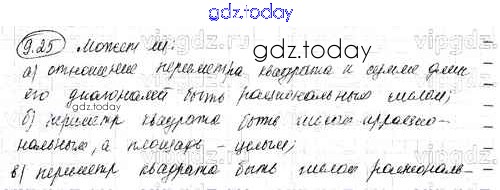 gdz.today
9.25 Может ли:
gdz.today
а) отношение периметра квадрата к сумме длин
его диагоналей быть рациональным числом;
б) периметр квадрата быть число иррацио-
нальным, а площадь - целым;
в) периметр квадрата быть числом рациональ-